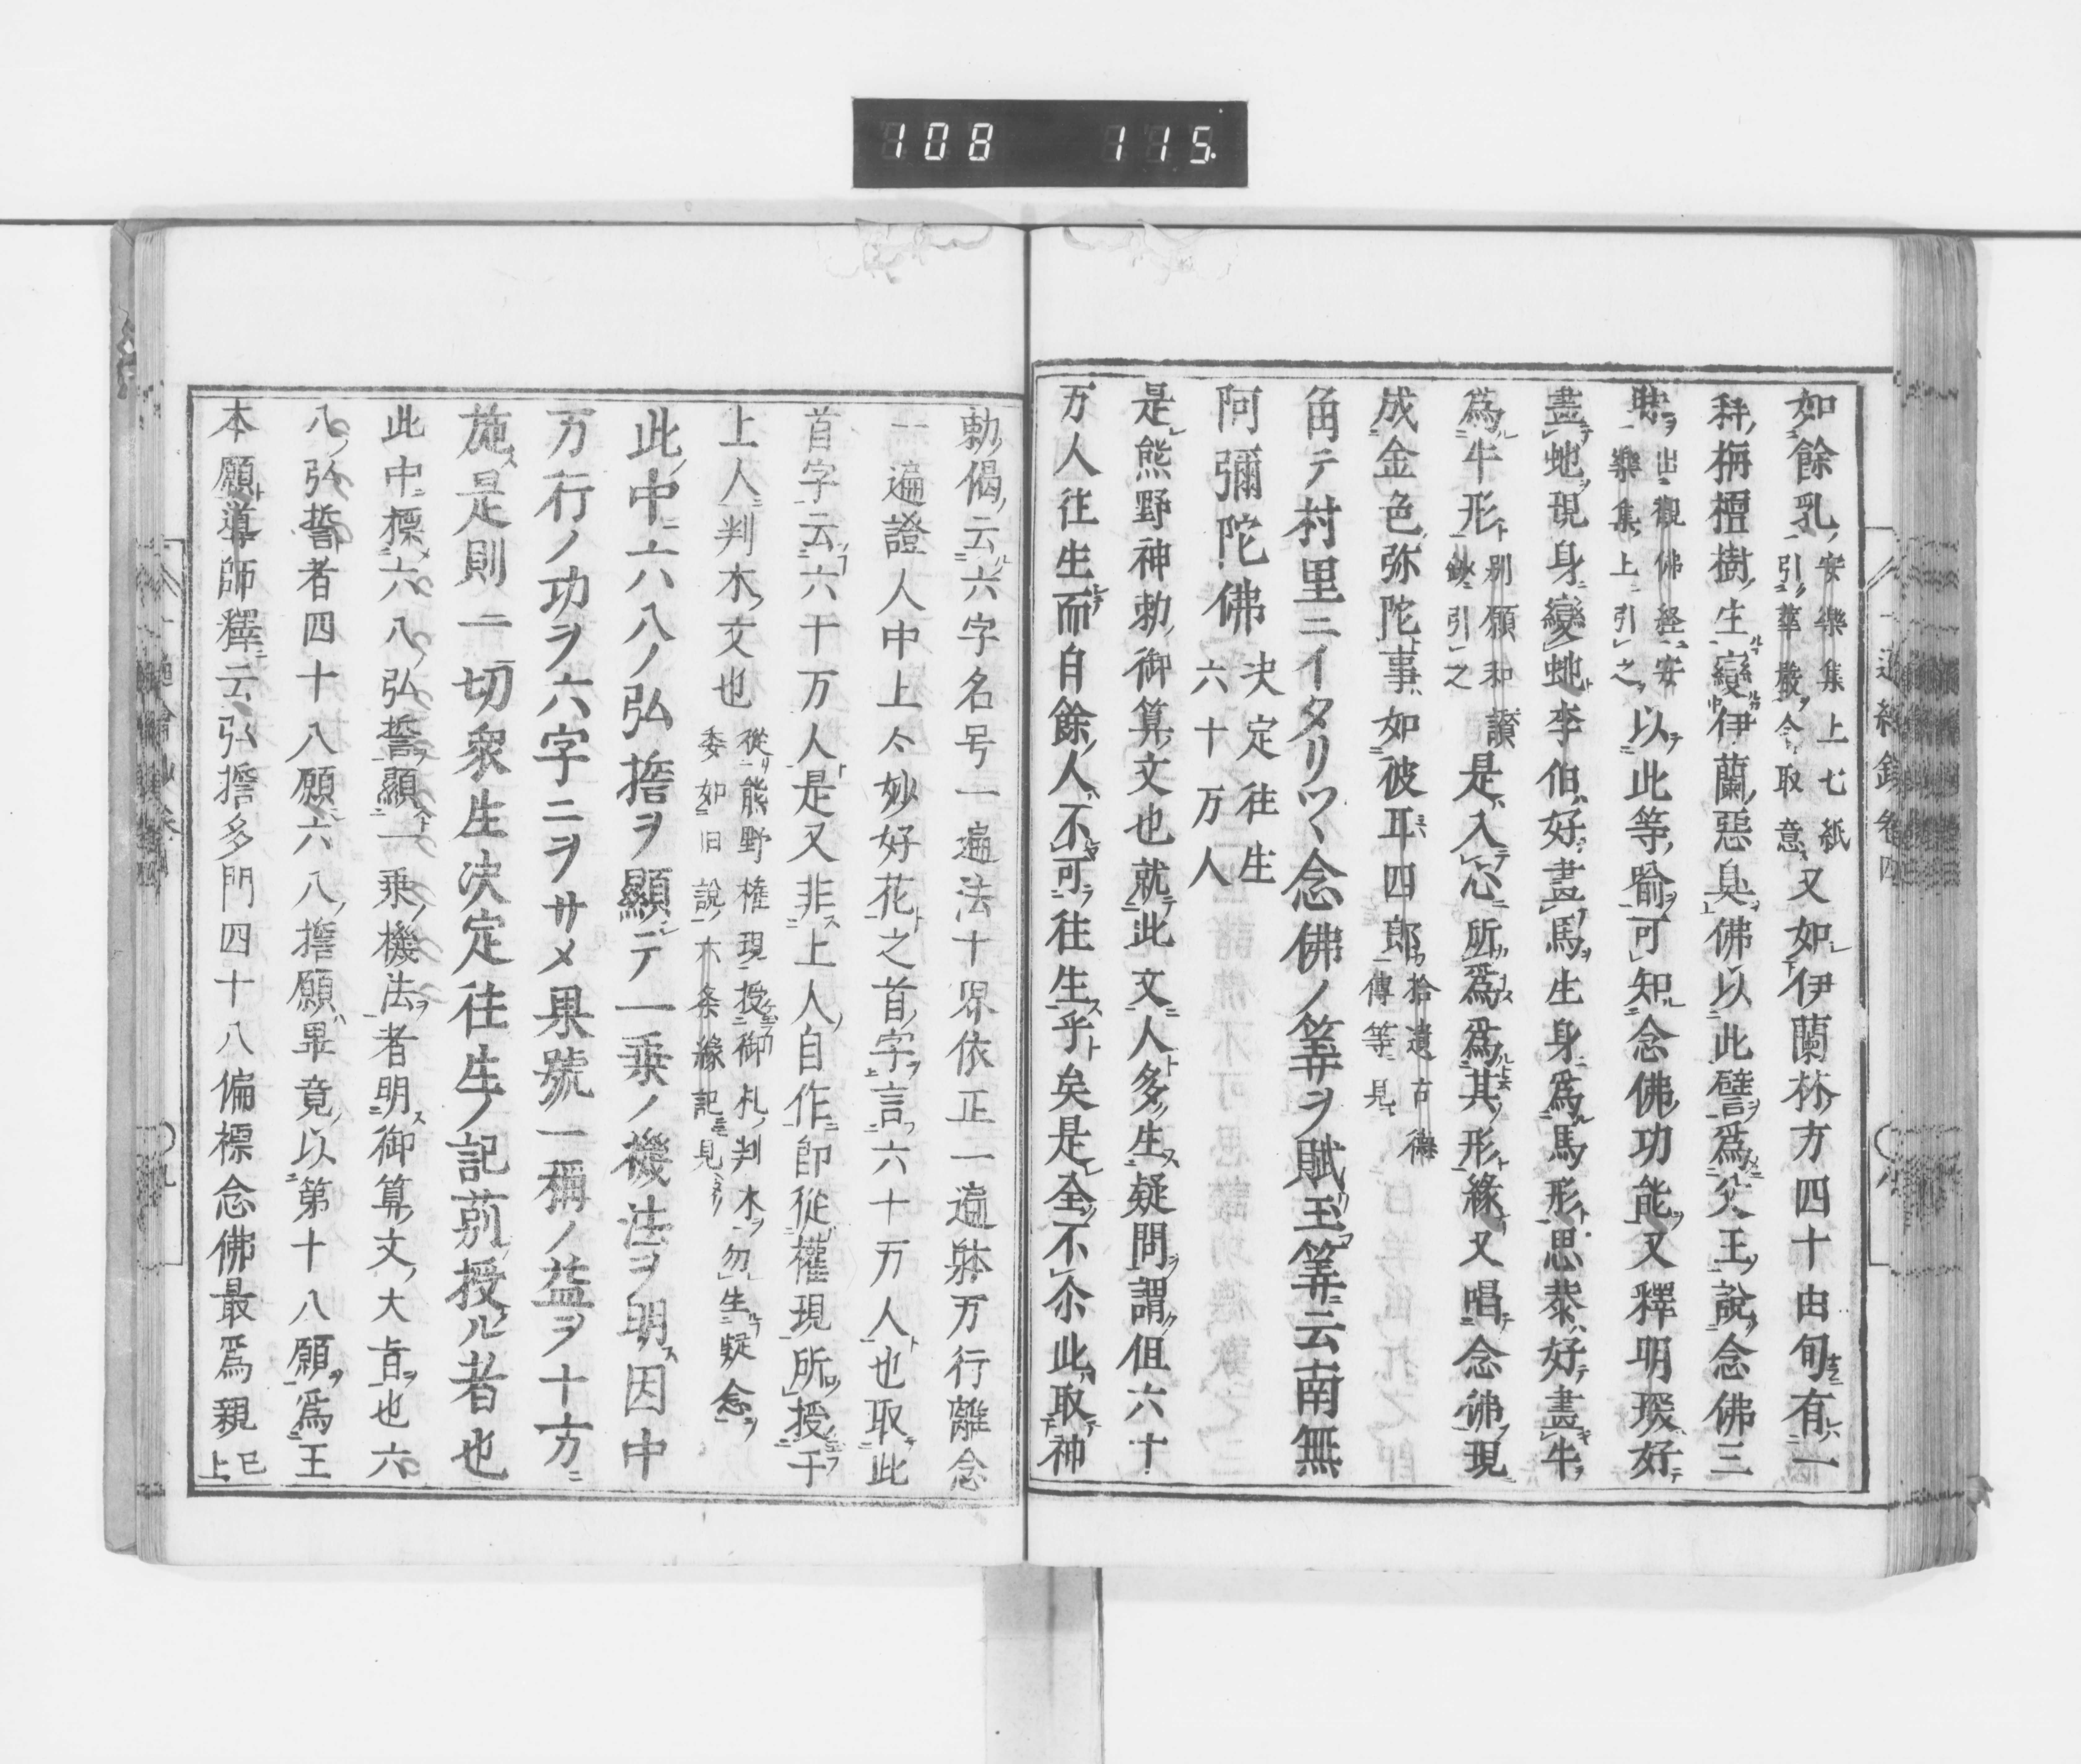 108 115
如餘乳安樂集上七紙引華嚴今取意又如伊蘭林方四十由旬有一
科栴檀樹生變伊蘭惡臭佛以此譬爲父王說念佛三
昧出觀佛経安樂集上引之以此等喩可知念佛功能又釋明瑗好
畫虵現身變虵李伯好畫馬生身爲馬形思恭好畫牛
爲牛形別願和讃鈔引之是入心所爲爲其形緣又唱念佛現
成金色弥陀事如彼耳四郎拾遺古德傳等見
角テ村里ニイタリツヽ念佛ノ筭ヲ賦玉筭云南無
阿彌陀佛決定往生六十万人
是熊野神勅御算文也就此文人多生疑問謂但六十
万人往生而自餘人不可往生乎矣是全不尒此取神
勅偈云六字名号一遍法十界依正一遍躰万行離念
一遍證人中上々妙好花之首字言六十万人也取此
首字云六十万人是又非上人自作即從權現所授于
上人判木文也從熊野権現授御札判木勿生疑念委如旧說六条緣記見
此中六八ノ弘誓ヲ顯テ一乘ノ機法ヲ明因中
万行ノ功ヲ六字ニヲサメ果號一稱ノ益ヲ十方
施是則一切衆生決定往生ノ記莂授ル者也
此中標六八弘誓顯一乘機法者明御算文大旨也六
八弘誓者四十八願六八誓願畢竟以第十八願爲王
本願導師釋云弘誓多門四十八偏標念佛最爲親已上